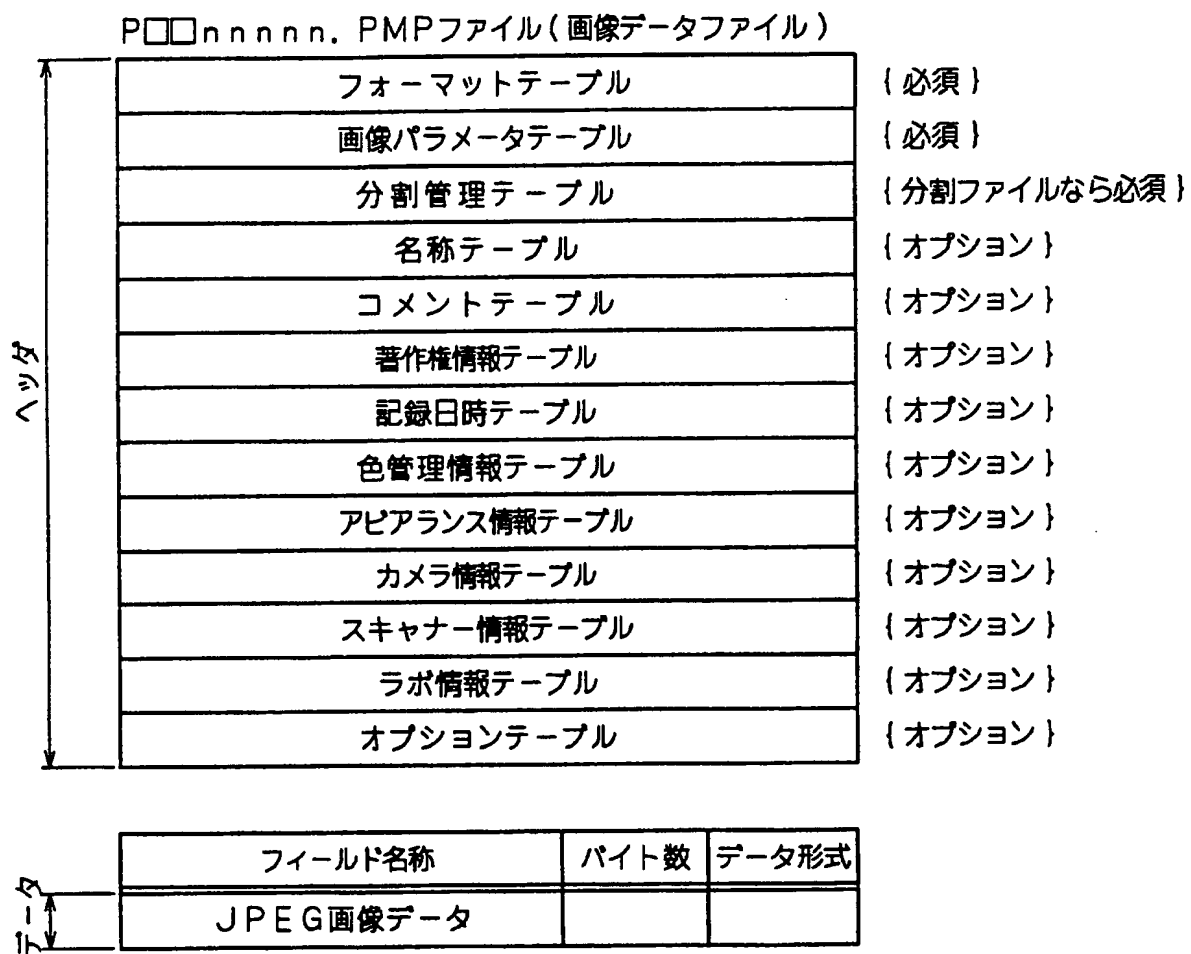 P□□nnnnn. PMPファイル(画像データファイル)
フォーマットテーブル {必須}
画像パラメータテーブル {必須}
分割管理テーブル {分割ファイルなら必須}
名称テーブル {オプション}
コメントテーブル {オプション}
著作権情報テーブル {オプション}
記録日時テーブル {オプション}
色管理情報テーブル {オプション}
アピアランス情報テーブル {オプション}
カメラ情報テーブル {オプション}
スキャナー情報テーブル {オプション}
ラボ情報テーブル {オプション}
オプションテーブル {オプション}
ヘッダ
フィールド名称 バイト数 データ形式
JPEG画像データ
データ